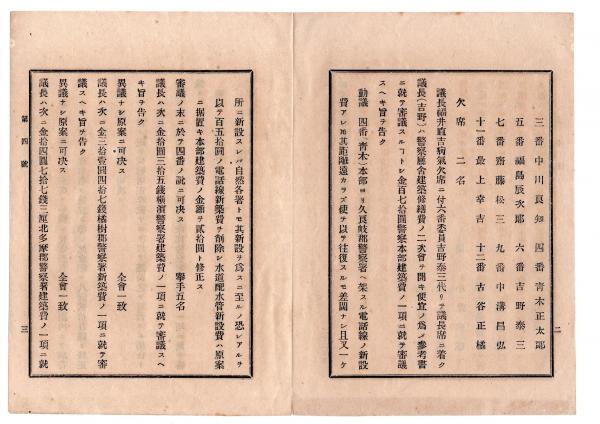 二
三番中川良知　四番青木正太郎
五番福島辰次郎　六番吉野泰三
七番齋藤松三　九番中溝昌弘
十一番最上幸吉　十二番古谷正橘
欠席　二名
議長福井直吉病氣欠席ニ付六番委員吉野泰三代リテ議長席ニ着ク
議長(吉野)ハ警察廳舍建築修繕費ノ二次會ヲ開キ便宜ノ爲メ參考書
ニ就テ審議スルコトトシ金百七拾圓警察本部建築費ノ一項ニ就テ審議
スヘキ旨ヲ告ク
動議　四番(青木)本部ヨリ久良岐郡警察署ヘ架スル電話線ノ新設
費アレトモ其距離遠カラズ使ヲ以テ往復スルモ差閊ナシ且又一ケ
所ニ新設スレバ自然各署トモ其新設ヲ爲スニ至ルノ恐レアルヲ
以テ百五拾圓ノ電話線新築費ヲ削除シ水道配水管新設費ハ原案
ニ据置キ本部建築費ノ金額ヲ貳拾圓ト修正ス
審議ノ末ニ於テ四番ノ說ニ可决ス　擧手五名
議長ハ次ニ金拾圓三拾五錢橫濱警察署建築費ノ一項ニ就テ審議スヘ
キ旨ヲ告ク
異議ナシ原案ニ可决ス　全會一致
議長ハ次ニ金三拾壹圓四拾七錢橘樹郡警察署新築費ノ一項ニ就テ審
議スヘキ旨ヲ告ク
異議ナシ原案ニ可决ス　全會一致
議長ハ次ニ金拾四圓七拾七錢三厘北多摩郡警察署建築費ノ一項ニ就
第四號
三